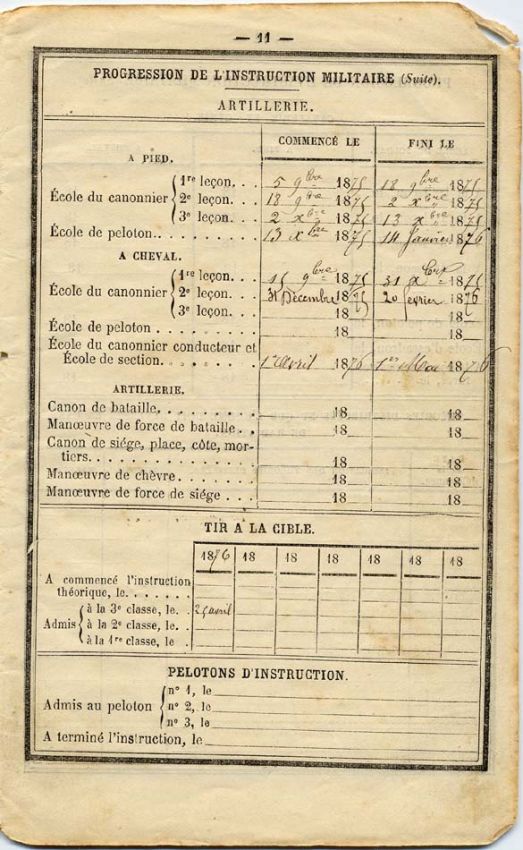 — 11 —
PROGRESSION DE L'INSTRUCTION MILITAIRE (Suite).
ARTILLERIE.
COMMENCÉ LE FINI LE
A PIED.
École du canonnier
1re leçon. . . 5 9bre 1875 18 9bre 1875
2e leçon. . . 18 9bre 1875 2 xbre 1875
3e leçon. . . 2 xbre 1875 13 xbre 1875
École de peloton. . . . . . . . 13 xbre 1875 14 Janvier 1876
A CHEVAL.
École du canonnier
1re leçon. . . 15 9bre 1875 31 xbre 1875
2e leçon. . . 31 Décembre 1875 20 février 1876
3e leçon. . . 18 18
École de peloton . . . . . . . . 18 18
École du canonnier conducteur et
École de section. . . . . . . 1er Avril 1876 1er Mai 1876
ARTILLERIE.
Canon de bataille. . . . . . . . 18 18
Manœuvre de force de bataille. . . 18 18
Canon de siége, place, côte, mor-
tiers. . . . . . . . . . . . . 18 18
Manœuvre de chèvre. . . . . . . 18 18
Manœuvre de force de siége . . . 18 18
TIR A LA CIBLE.
1876 18 18 18 18 18 18
A commencé l'instruction
théorique, le. . . . . . .
Admis
à la 3e classe, le. . 25 avril
à la 2e classe, le. .
à la 1re classe, le. .
PELOTONS D'INSTRUCTION.
Admis au peloton
n° 1, le
n° 2, le
n° 3, le
A terminé l'instruction, le